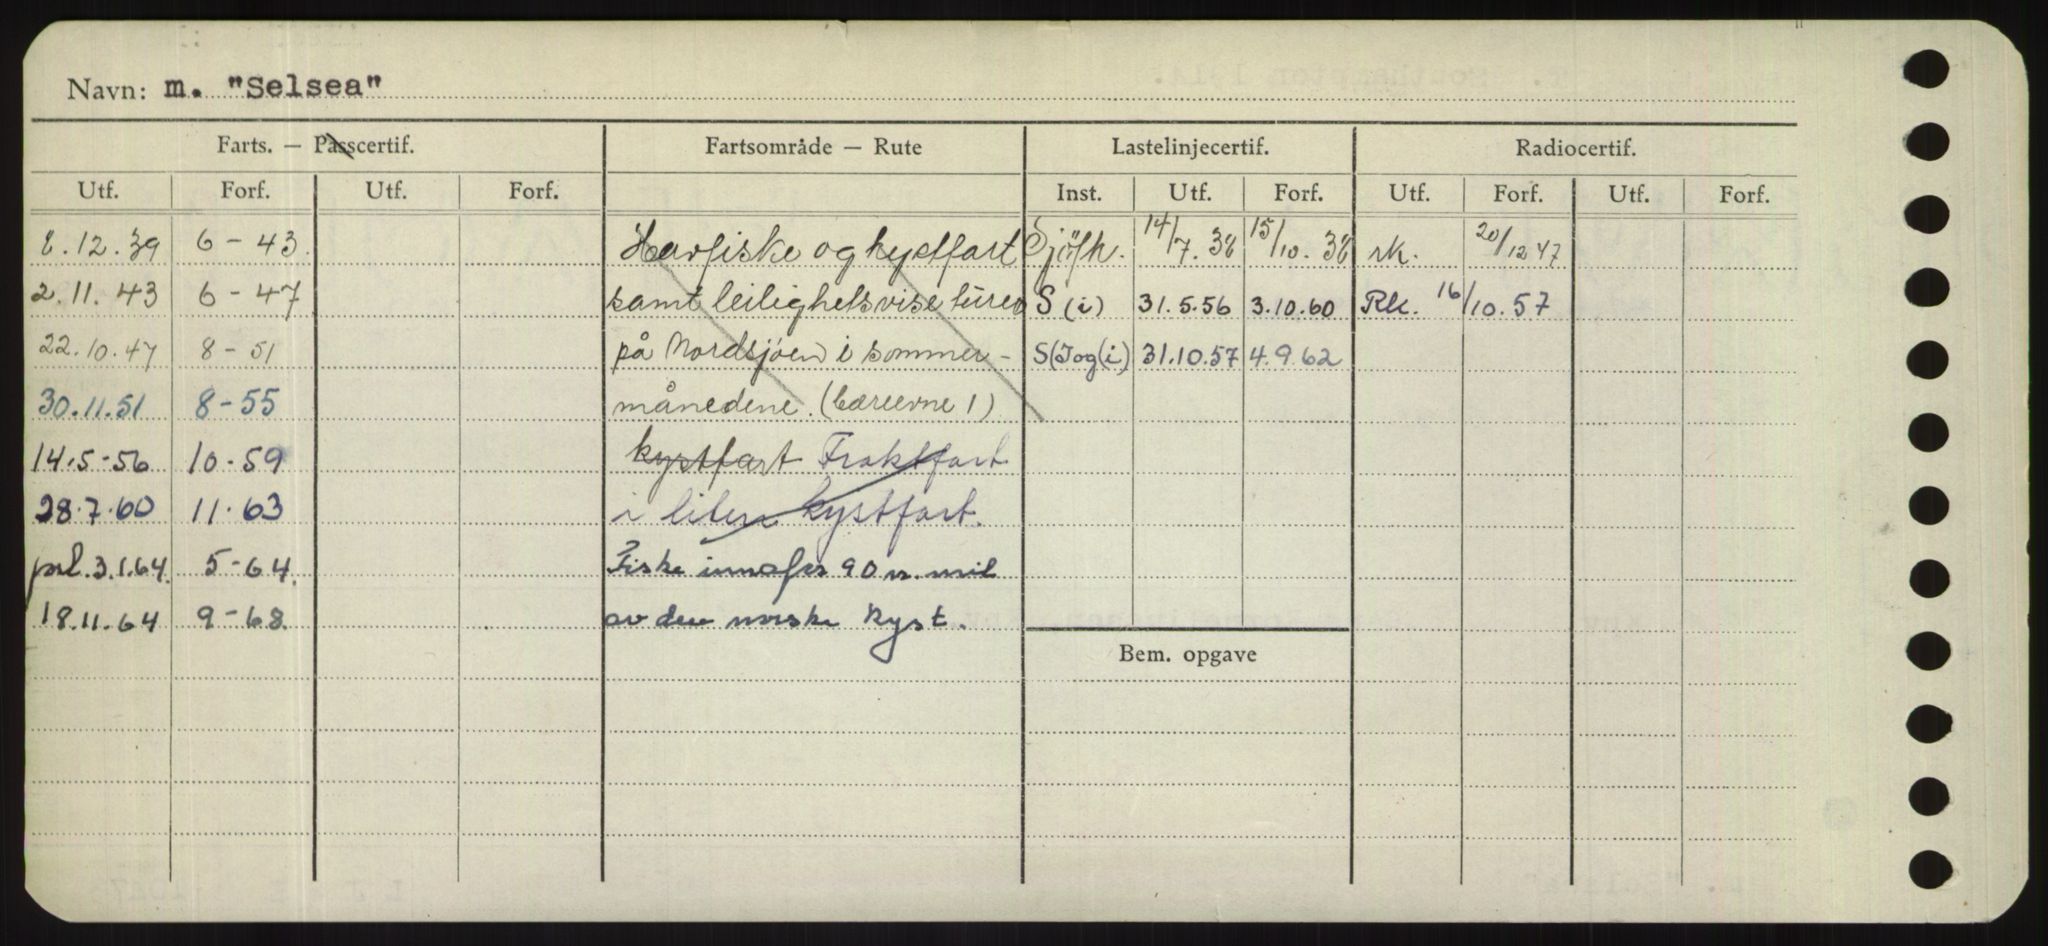 Navn: m. "Selsea"
Farts. — Passcertif. Fartsområde — Rute Lastelinjecertif. Radiocertif.
Utf. Forf. Utf. Forf. Inst. Utf. Forf. Utf. Forf. Utf. Forf.
8.12.39 6-43. Havfiske og kystfart Sjöfk. 14/7.38 15/10.38 rk. 20/12 47
2.11.43 6-47 samt leilighetsvise turer S (i) 31.5.56 3.10.60 Rk. 16/10.57
22.10.47 8-51 på Nordsjøen i sommer- S(I og(i) 31.10.57 4.9.62
30.11.51 8-55 månedene. (bæreevne 1)
14.5-56 10-59 kystfart Fraktfart
28.7.60 11.63 i liten kystfart.
prl. 3.1.64. 5-64. Fiske innafor 90 n. mil
18.11.64 9-68. av den norske kyst.
Bem. opgave